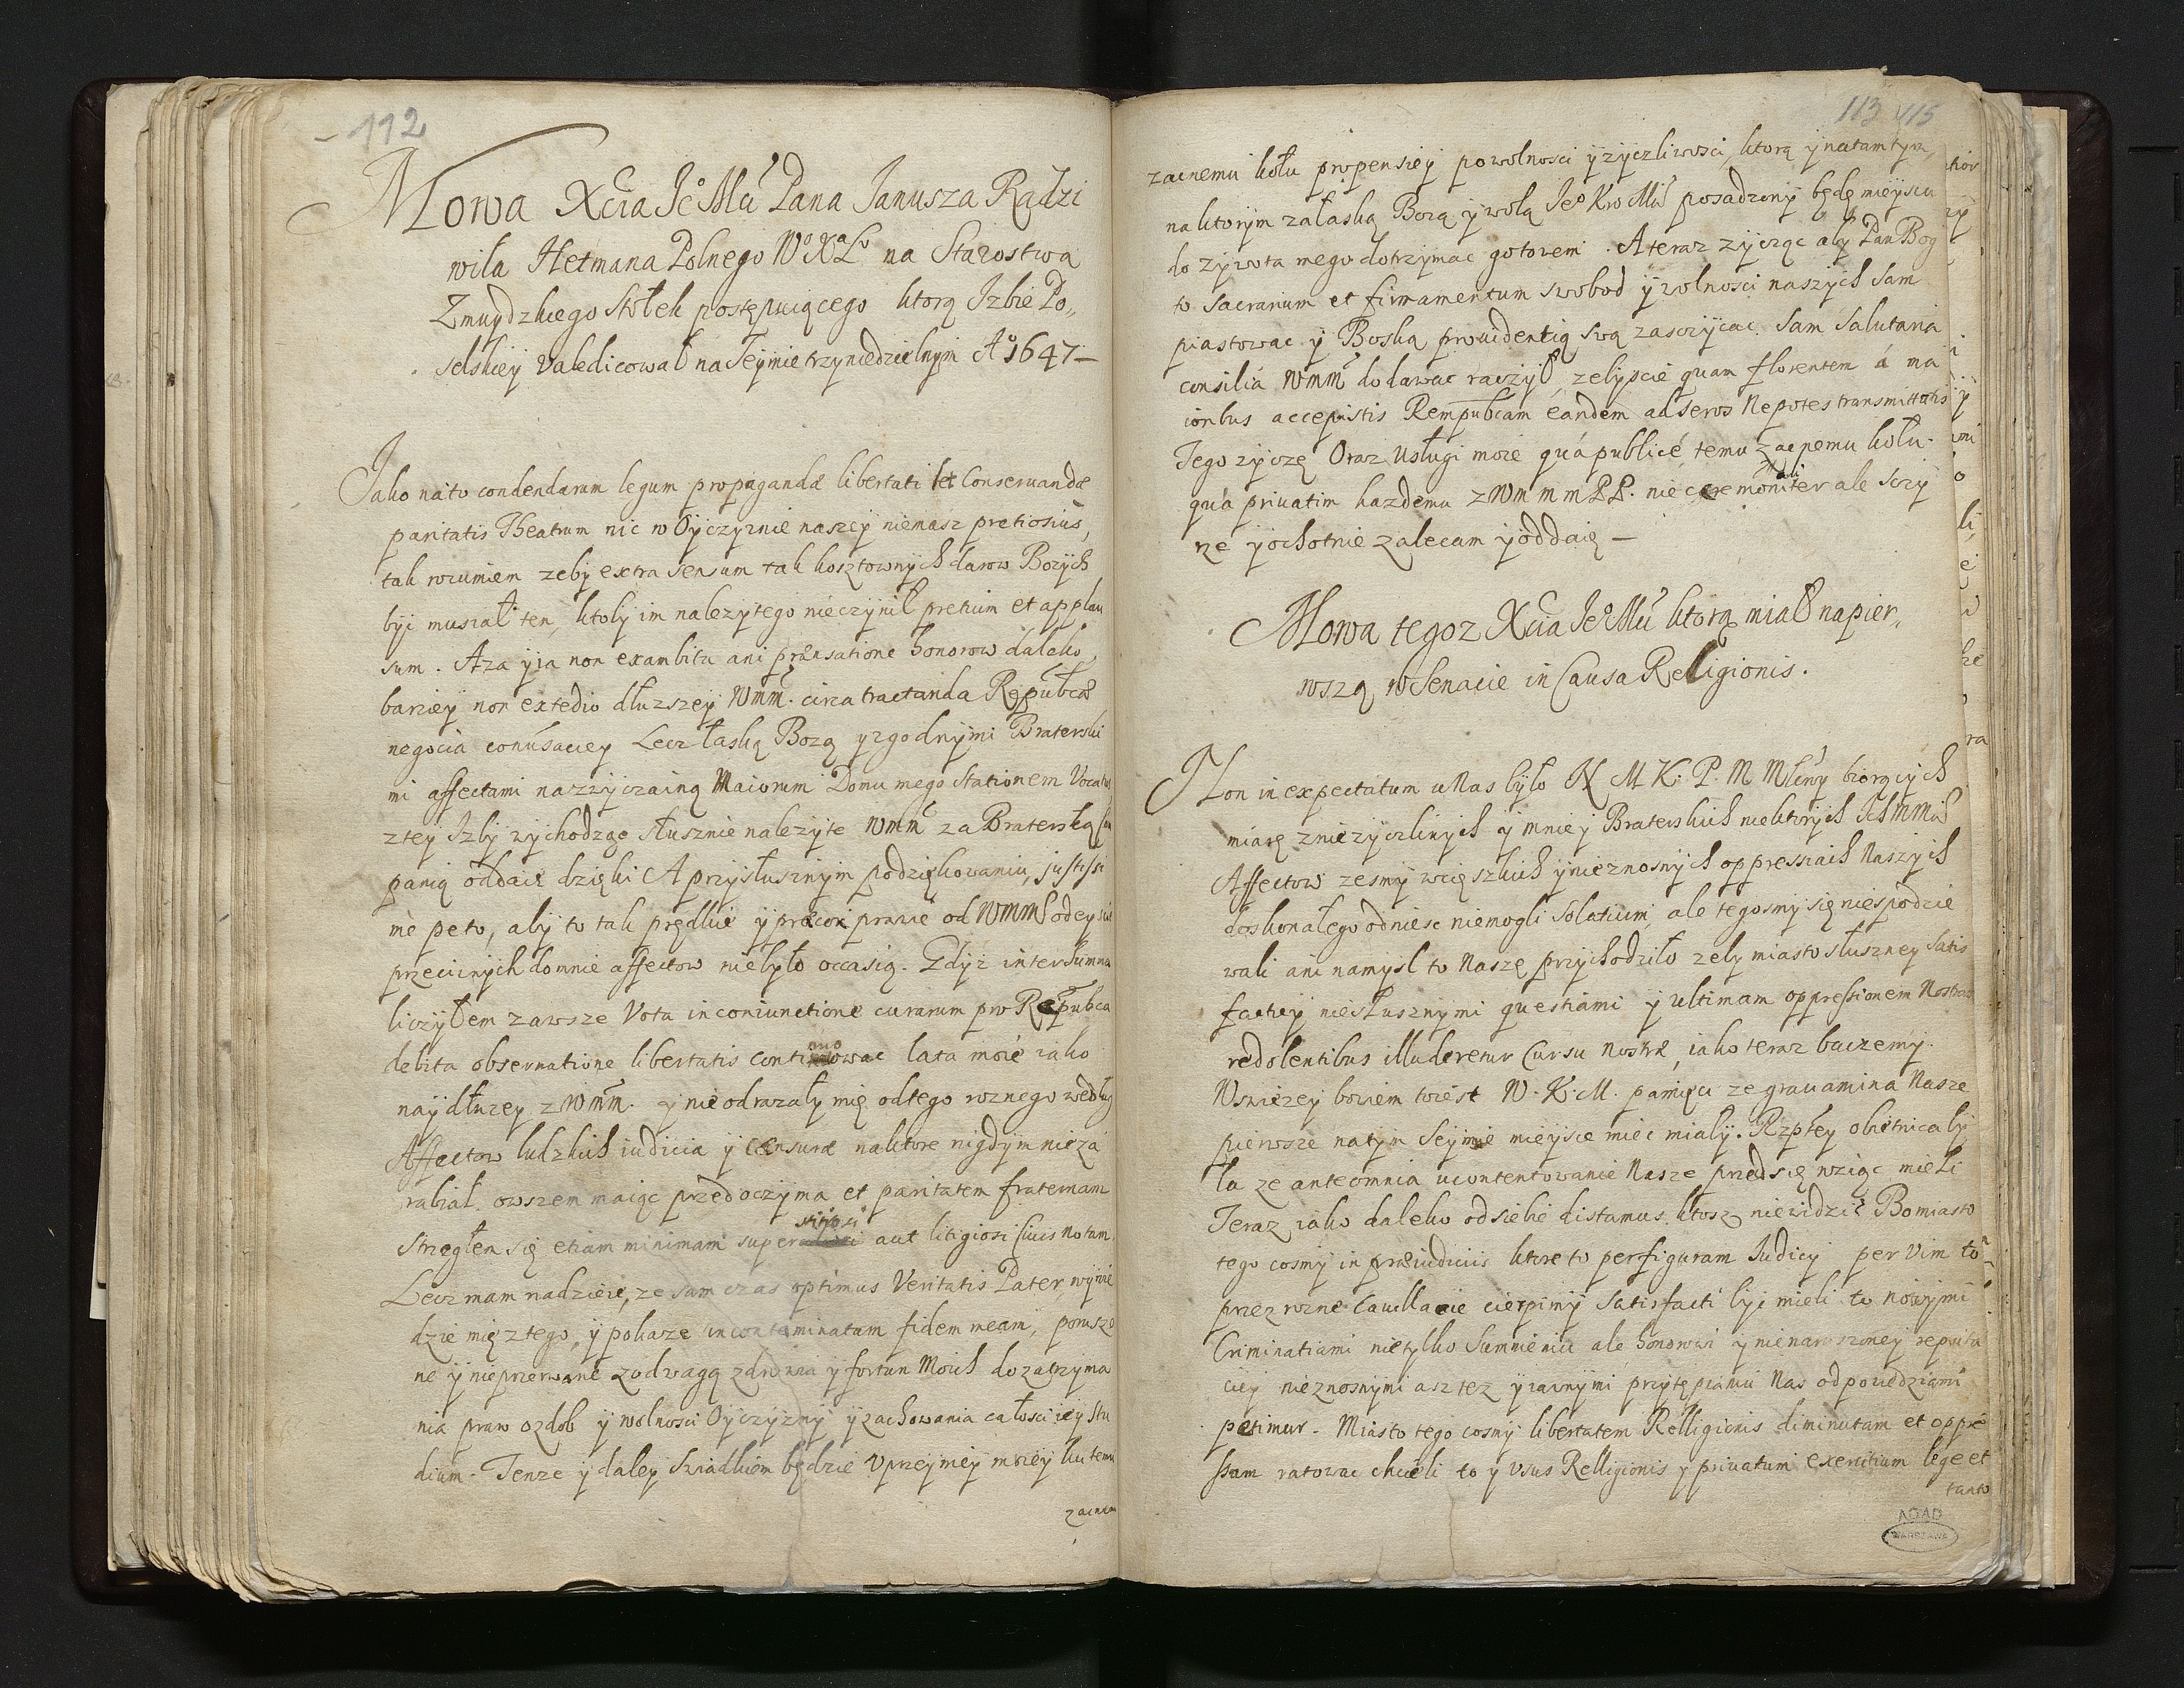 112
Mowa Xcia Je° Mći Pana Janusza Radzi
wiła Hetmana Polnego W° X° L° na Starostwa
Zmuydzkiego Stołek postępuiącego ktorą Izbie Po„
selskiey valedicował na Seymie trzyniedzielnym A° 1647 —
Jako na to condendarum legum propagandæ libertati et conseruandæ
paritatis Theatrum nic w Oyczyznie naszey niemasz pretiosius,
tak rozumiem zeby extra sensum tak kosztownych darow Bozych
byc musiał ten, ktoby im nalezytego nieczynił pretium et applau
sum. Aza y ia non ex ambitu ani præsatione honorow daleko
barziey non ex tedio dłuzszey WMM. circa tractanda Reipubcæ
negocia conuersaciey Lecz łaską Bozą y zgodnymi Braterski
mi affectami nazzyczainą Maiorum Domu mego stationem Vocatus
z tey Izby wychodzę słusznie nalezyte WMM za Braterską
panią oddaię dzięki A przy słusznym podziękowaniu, justissi
mè peto, aby to tak prędkie y præcox prawie od WMM odeyscie
przeciwnych do mnie affectow niebyło occasią. Gdyz inter summa
liczyłem zawsze Vota in coniunctione curarum pro Repubca
debita obseruatione libertatis continuowac lata moie iako
naydłuzey z WMM. y nie odrazały mię od tego roznego według
Affectow ludzkich iudicia y censuræ na ktore nigdym nie za
rabiał. owszem maiąc przed oczyma et paritatem fraternam
strzegłem się etiam minimam superstitiosi aut litigiosi Ciuis notam.
Lecz mam nadzieię, ze sam czas optimus Veritatis Pater, wywie
dzie mię z tego, y pokaze incontaminatam fidem meam, porusze
ne y nieprzerwane z odwagą zdrowia y fortun Moich do zatrzyma
nia praw ozdob y wolnosci Oyczyzny y zachowania całosci iey stu
dium. Tenze y daley swiadkiem będzie Vprzeymey mriey ku temu
zacnem
113 115
zacnemu kołu propensiey powolnosci y zyczliwosci, ktorą y na tamtym,
na ktorym za łaską Bozą y wolą Je° Kro Mći posadzony będę mieyscu
do zywota mego dotrzymac gotowem. A teraz zycząc aby Pan Bog
to sacrarium et firmamentum swobod y wolnosci naszych sam
piastowac y Boską prouidentią swą zasczycac, sam salutaria
consilia WMM dodawac raczył, zebyscie quam florentem á ma
ioribus accepistis Rempubcam eandem ad seros Nepotes transmittatis
Tego zyczę Oraz Usługi moie quá publicé temu zacnemu kołu
quá priuatim kazdemu z WmmmPP. nie ceremonialiter ale sczy
rze y ochotnie zalecam y oddaię —
Mowa tegoz Xcia Je° Mći ktorą miał napier„
wszą w Senacie in Causa Religionis.
Non inexpectatum u Nas było N M K. P. M Mściwy biorących
miarę z niezyczliwych y mniey Braterskich niektorych IchMMciow
Affectow zesmy w cięszkich y nieznosnych oppressiach Naszych
doskonałego odniesc niemogli Solatium, ale tegosmy się niespodzie
wali ani na mysl to Naszę przychodziło zeby miasto słuszney satis
factiey niesłusznymi questiami y ultimam oppressionem Nostram
redolentibus illuderetur Cursu Nostræ, iako teraz baczemy.
W swiezey bowiem iest W. K. M. pamięci ze grauamina Nasze
pierwsze na tym Seymie mieysce miec miały. Rzptey obietnica by
ła ze ante omnia ucontentowanie Nasze przed się wziąc mieli
Teraz iako daleko od siebie distamus, ktosz niewidzi? Bo miasto
tego cosmy in præiudiciis ktore to per figuram Iudicy per Vim to
przez rozne cauillacie cierpimy satisfacti byc mieli to nowymi
Criminatiami nietylko Sumnieniu ale honorowi y nienaruszoney reputa
ciey nieznosnymi asz tez y iawnymi przytępiamu Nas odpowiedziami
petimur. Miasto tego cosmy libertatem Relligionis diminutam et oppre
ssam ratowac chcieli to y usus Relligionis y priuatum exercitium lege et
tanto
AGAD
WARSZAWA